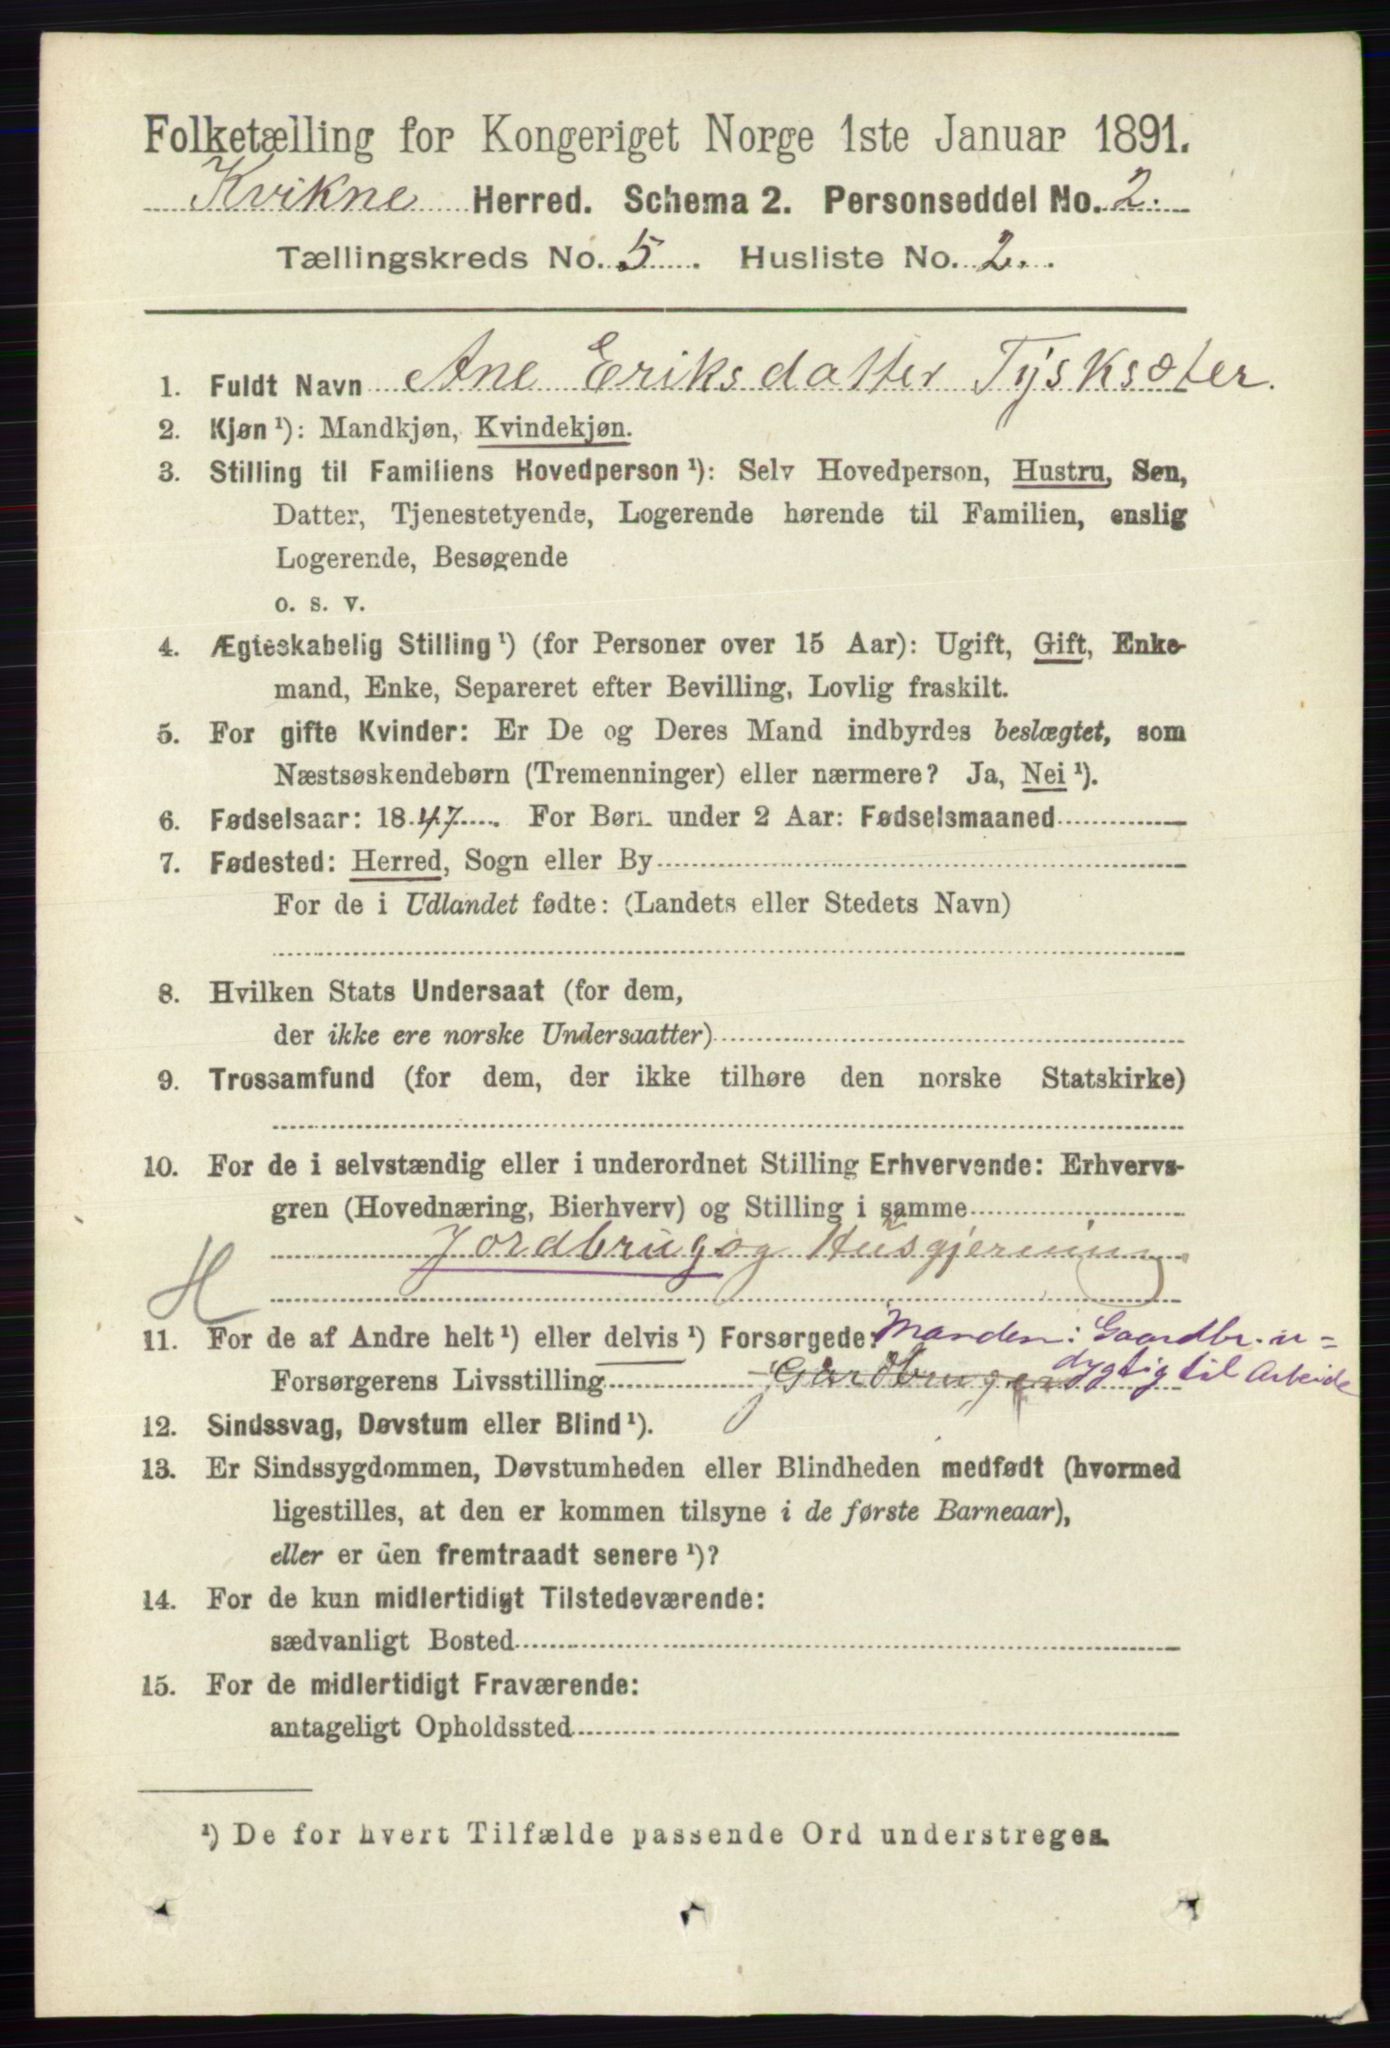 Folketælling for Kongeriget Norge 1ste Januar 1891.
Kvikne Herred. Schema 2. Personseddel No. 2.
Tællingskreds No. 5. Husliste No. 2.
1. Fuldt Navn Ane Eriksdatter Tysksæter.
2. Kjøn ¹): Mandkjøn, Kvindekjøn.
3. Stilling til Familiens Hovedperson ¹): Selv Hovedperson, Hustru, Søn,
Datter, Tjenestetyende, Logerende hørende til Familien, enslig
Logerende, Besøgende
o. s. v.
4. Ægteskabelig Stilling ¹) (for Personer over 15 Aar): Ugift, Gift, Enke-
mand, Enke, Separeret efter Bevilling, Lovlig fraskilt.
5. For gifte Kvinder: Er De og Deres Mand indbyrdes beslægtet, som
Næstsøskendebørn (Tremenninger) eller nærmere? Ja, Nei ¹).
6. Fødselsaar: 1847. For Børn under 2 Aar: Fødselsmaaned
7. Fødested: Herred, Sogn eller By
For de i Udlandet fødte: (Landets eller Stedets Navn)
8. Hvilken Stats Undersaat (for dem,
der ikke ere norske Undersaatter)
9. Trossamfund (for dem, der ikke tilhøre den norske Statskirke)
10. For de i selvstændig eller i underordnet Stilling Erhvervende: Erhvervs-
gren (Hovednæring, Bierhverv) og Stilling i samme
Jordbrug og Husgjerning
H
11. For de af Andre helt ¹) eller delvis ¹) Forsørgede: Manden: Gaardbr. u-
Forsørgerens Livsstilling Gårdbruger dygtig til Arbeide
12. Sindssvag, Døvstum eller Blind ¹).
13. Er Sindssygdommen, Døvstumheden eller Blindheden medfødt (hvormed
ligestilles, at den er kommen tilsyne i de første Barneaar),
eller er den fremtraadt senere ¹)?
14. For de kun midlertidigt Tilstedeværende:
sædvanligt Bosted
15. For de midlertidigt Fraværende:
antageligt Opholdssted
¹) De for hvert Tilfælde passende Ord understreges.